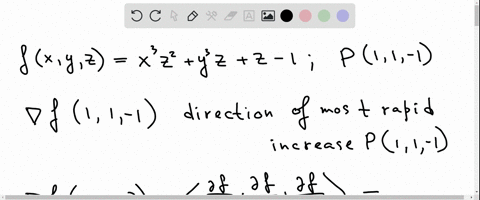 f(x,y,z) = x³z² + y³z + z - 1 ; P(1,1,-1)
∇f(1,1,-1) direction of most rapid
increase P(1,1,-1)
∂f ∂f ∂f